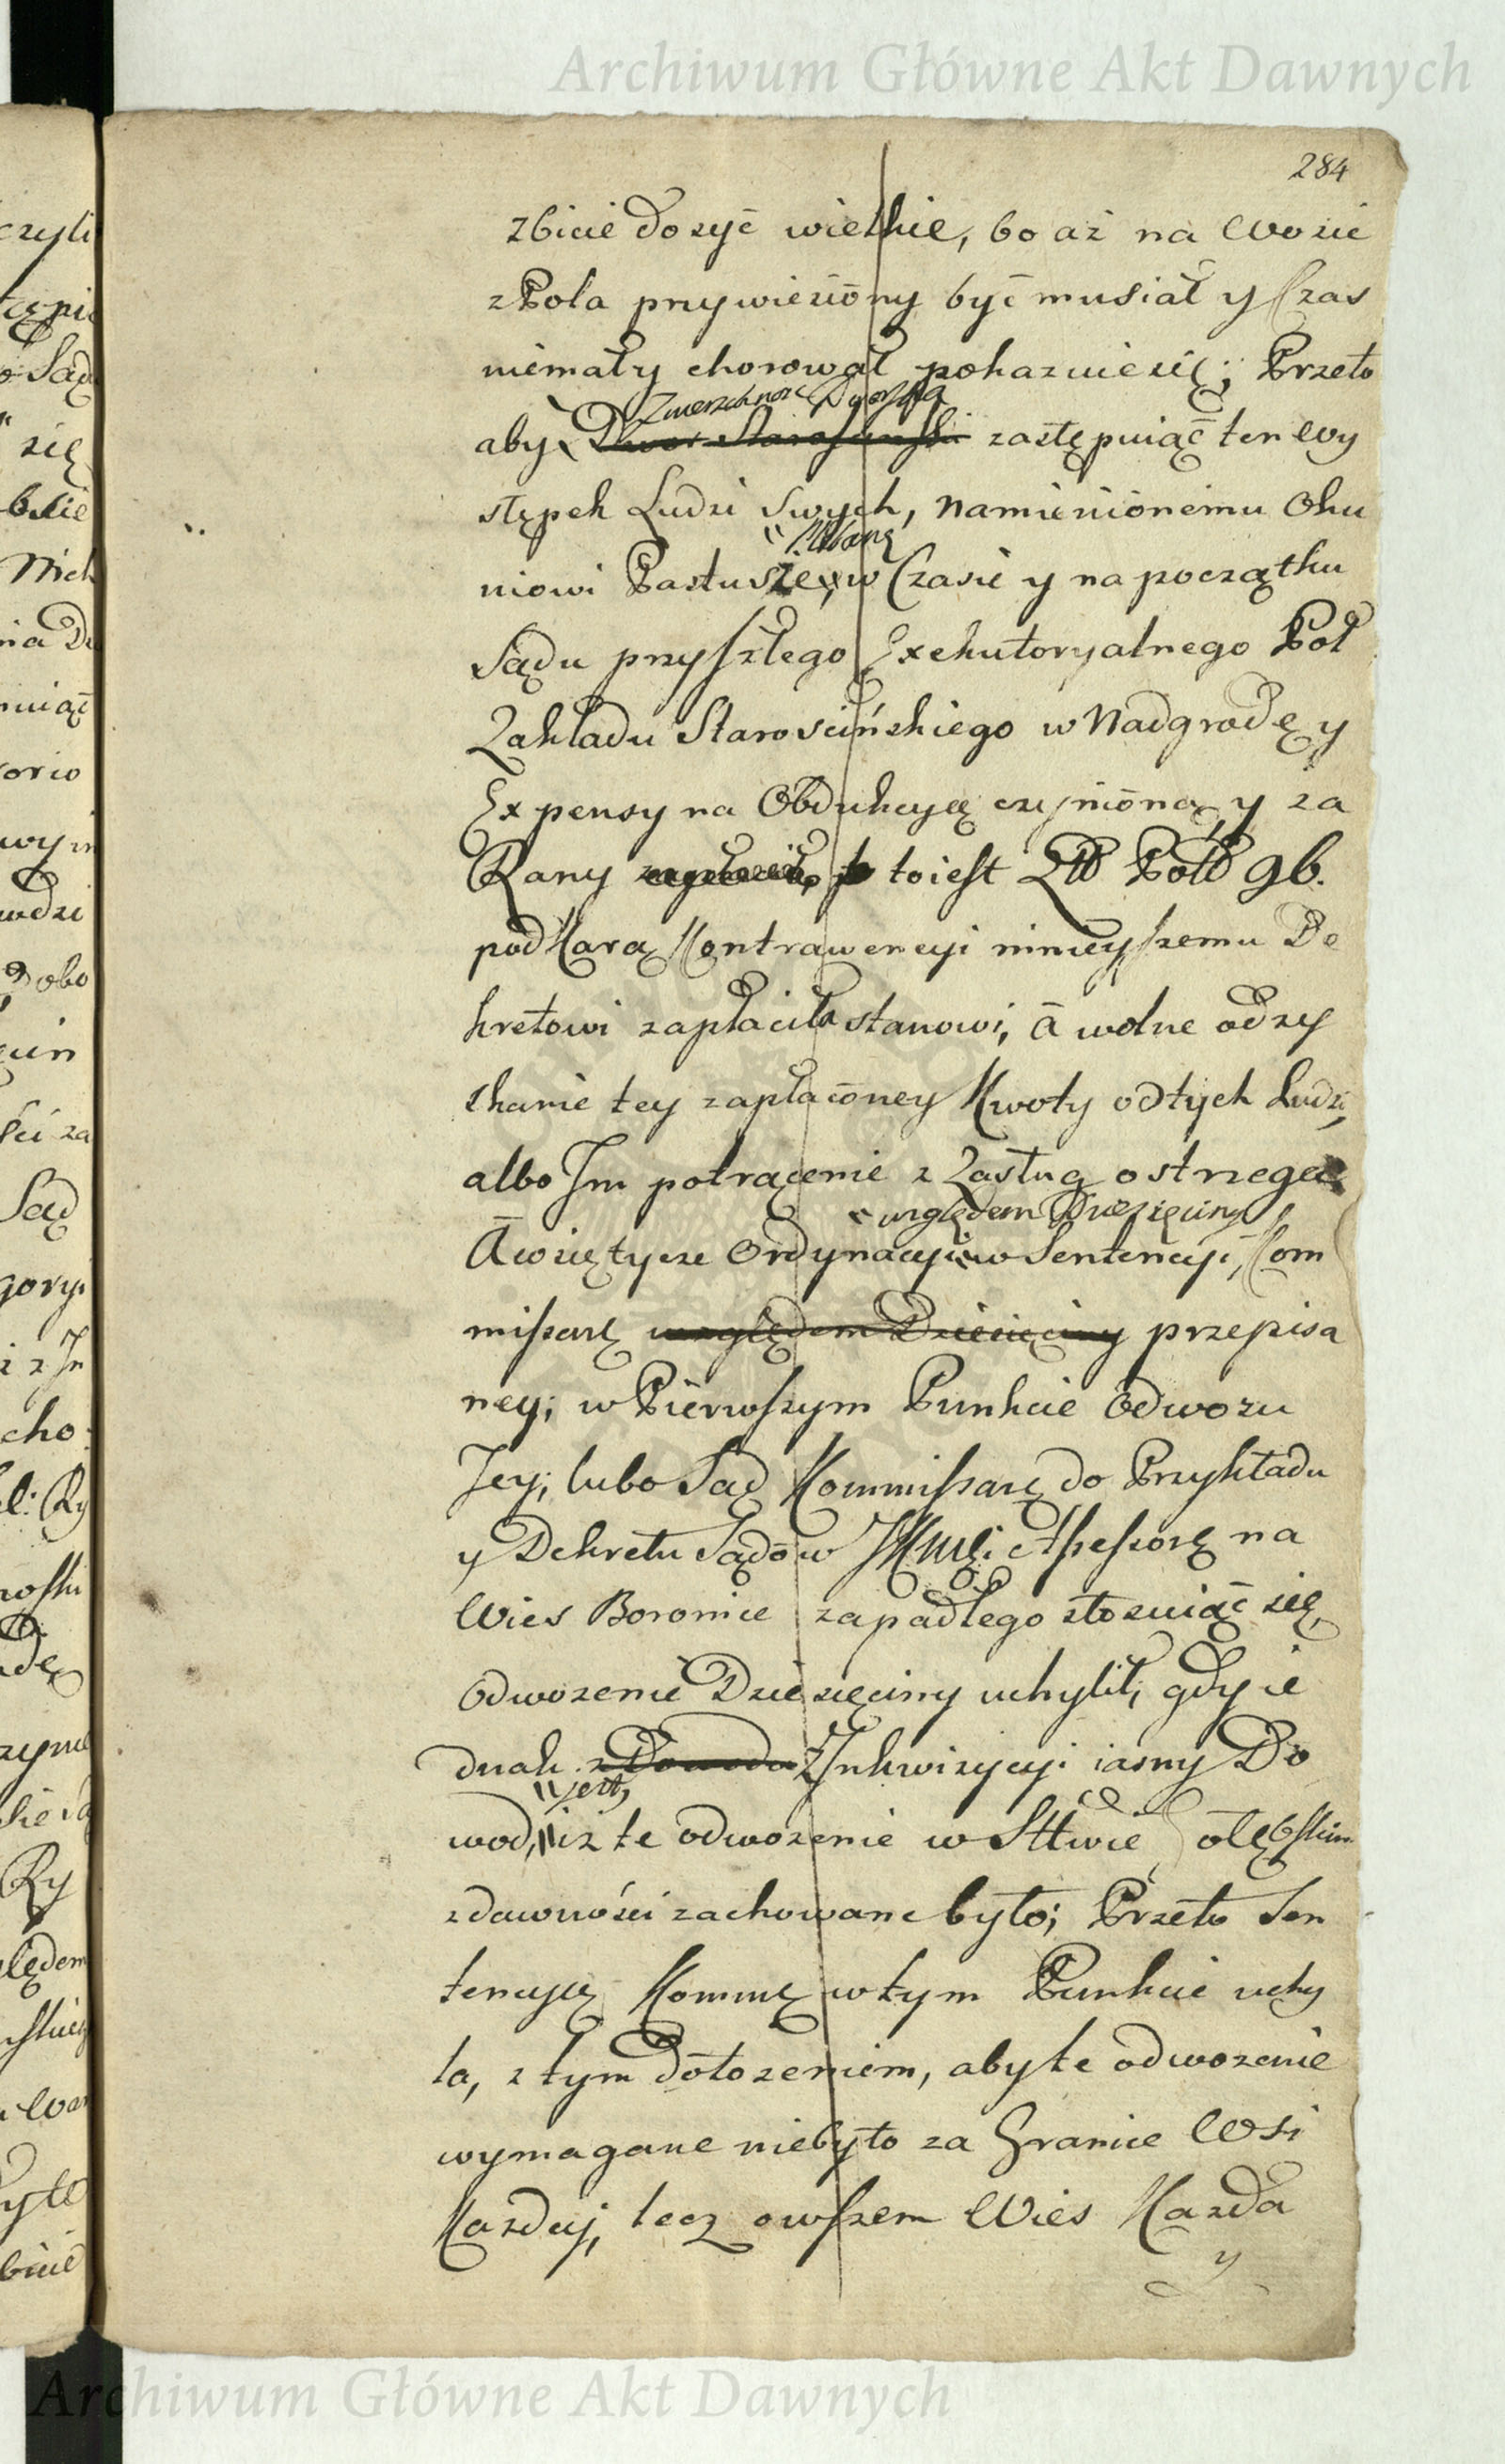 Archiwum Główne Akt Dawnych
284
zbicie dosyć wielkie, bo aż na Wozie
z Pola przywieziony być musiał y Czas
niemały chorował pokazuie się; Przeto
Zwierzchność Dworska
aby Dwor Starosciński zastępuiąć ten wy
stępek Ludzi swych, namienionemu Oku
niowi Pastusze, w Czasie y na początku
Sądu przyszłego Exekutoryalnego Pod
Zakładu Starościńskiego w Nadgrodę y
Expensy na Obdukcyę czynioną, y za
Rany to iest Zł Pol 96.
pod Karą Kontrawencyi ninieyszemu De
kretowi zapłaciła stanowi, à wolne odzy
skanie tey zapłaconey Kwoty od tych Ludzi,
albo Im potrącenie z Zasług ostrzega
względem Dziesięciny
A w się tycze Ordynacyi w Sentencyi, Kom
missarz względem Dziesięciny przepisa
ney; w Pierwszym Punkcie Odwozu
Jey; lubo Sąd Kommissarz do Przykładu
y Dekretu Sądów Assessorz na
Wies Boronice zapadłego stosuiąć się,
Odwozenie Dziesięciny uchylił, gdy ie
dnak z Dowodu z Inkwizycyi iasny Do
jest,
wod, iz te odwozenie w Sttwie olębskim
z dawności zachowane było; Przeto Sen
tencyę Kommę w tym Punkcie uchy
la, z tym dołozeniem, aby te odwozenie
wymagane niebyło za Granice Wsi
Kazdej, lecz owszem Wies Kazda
y
Archiwum Główne Akt Dawnych